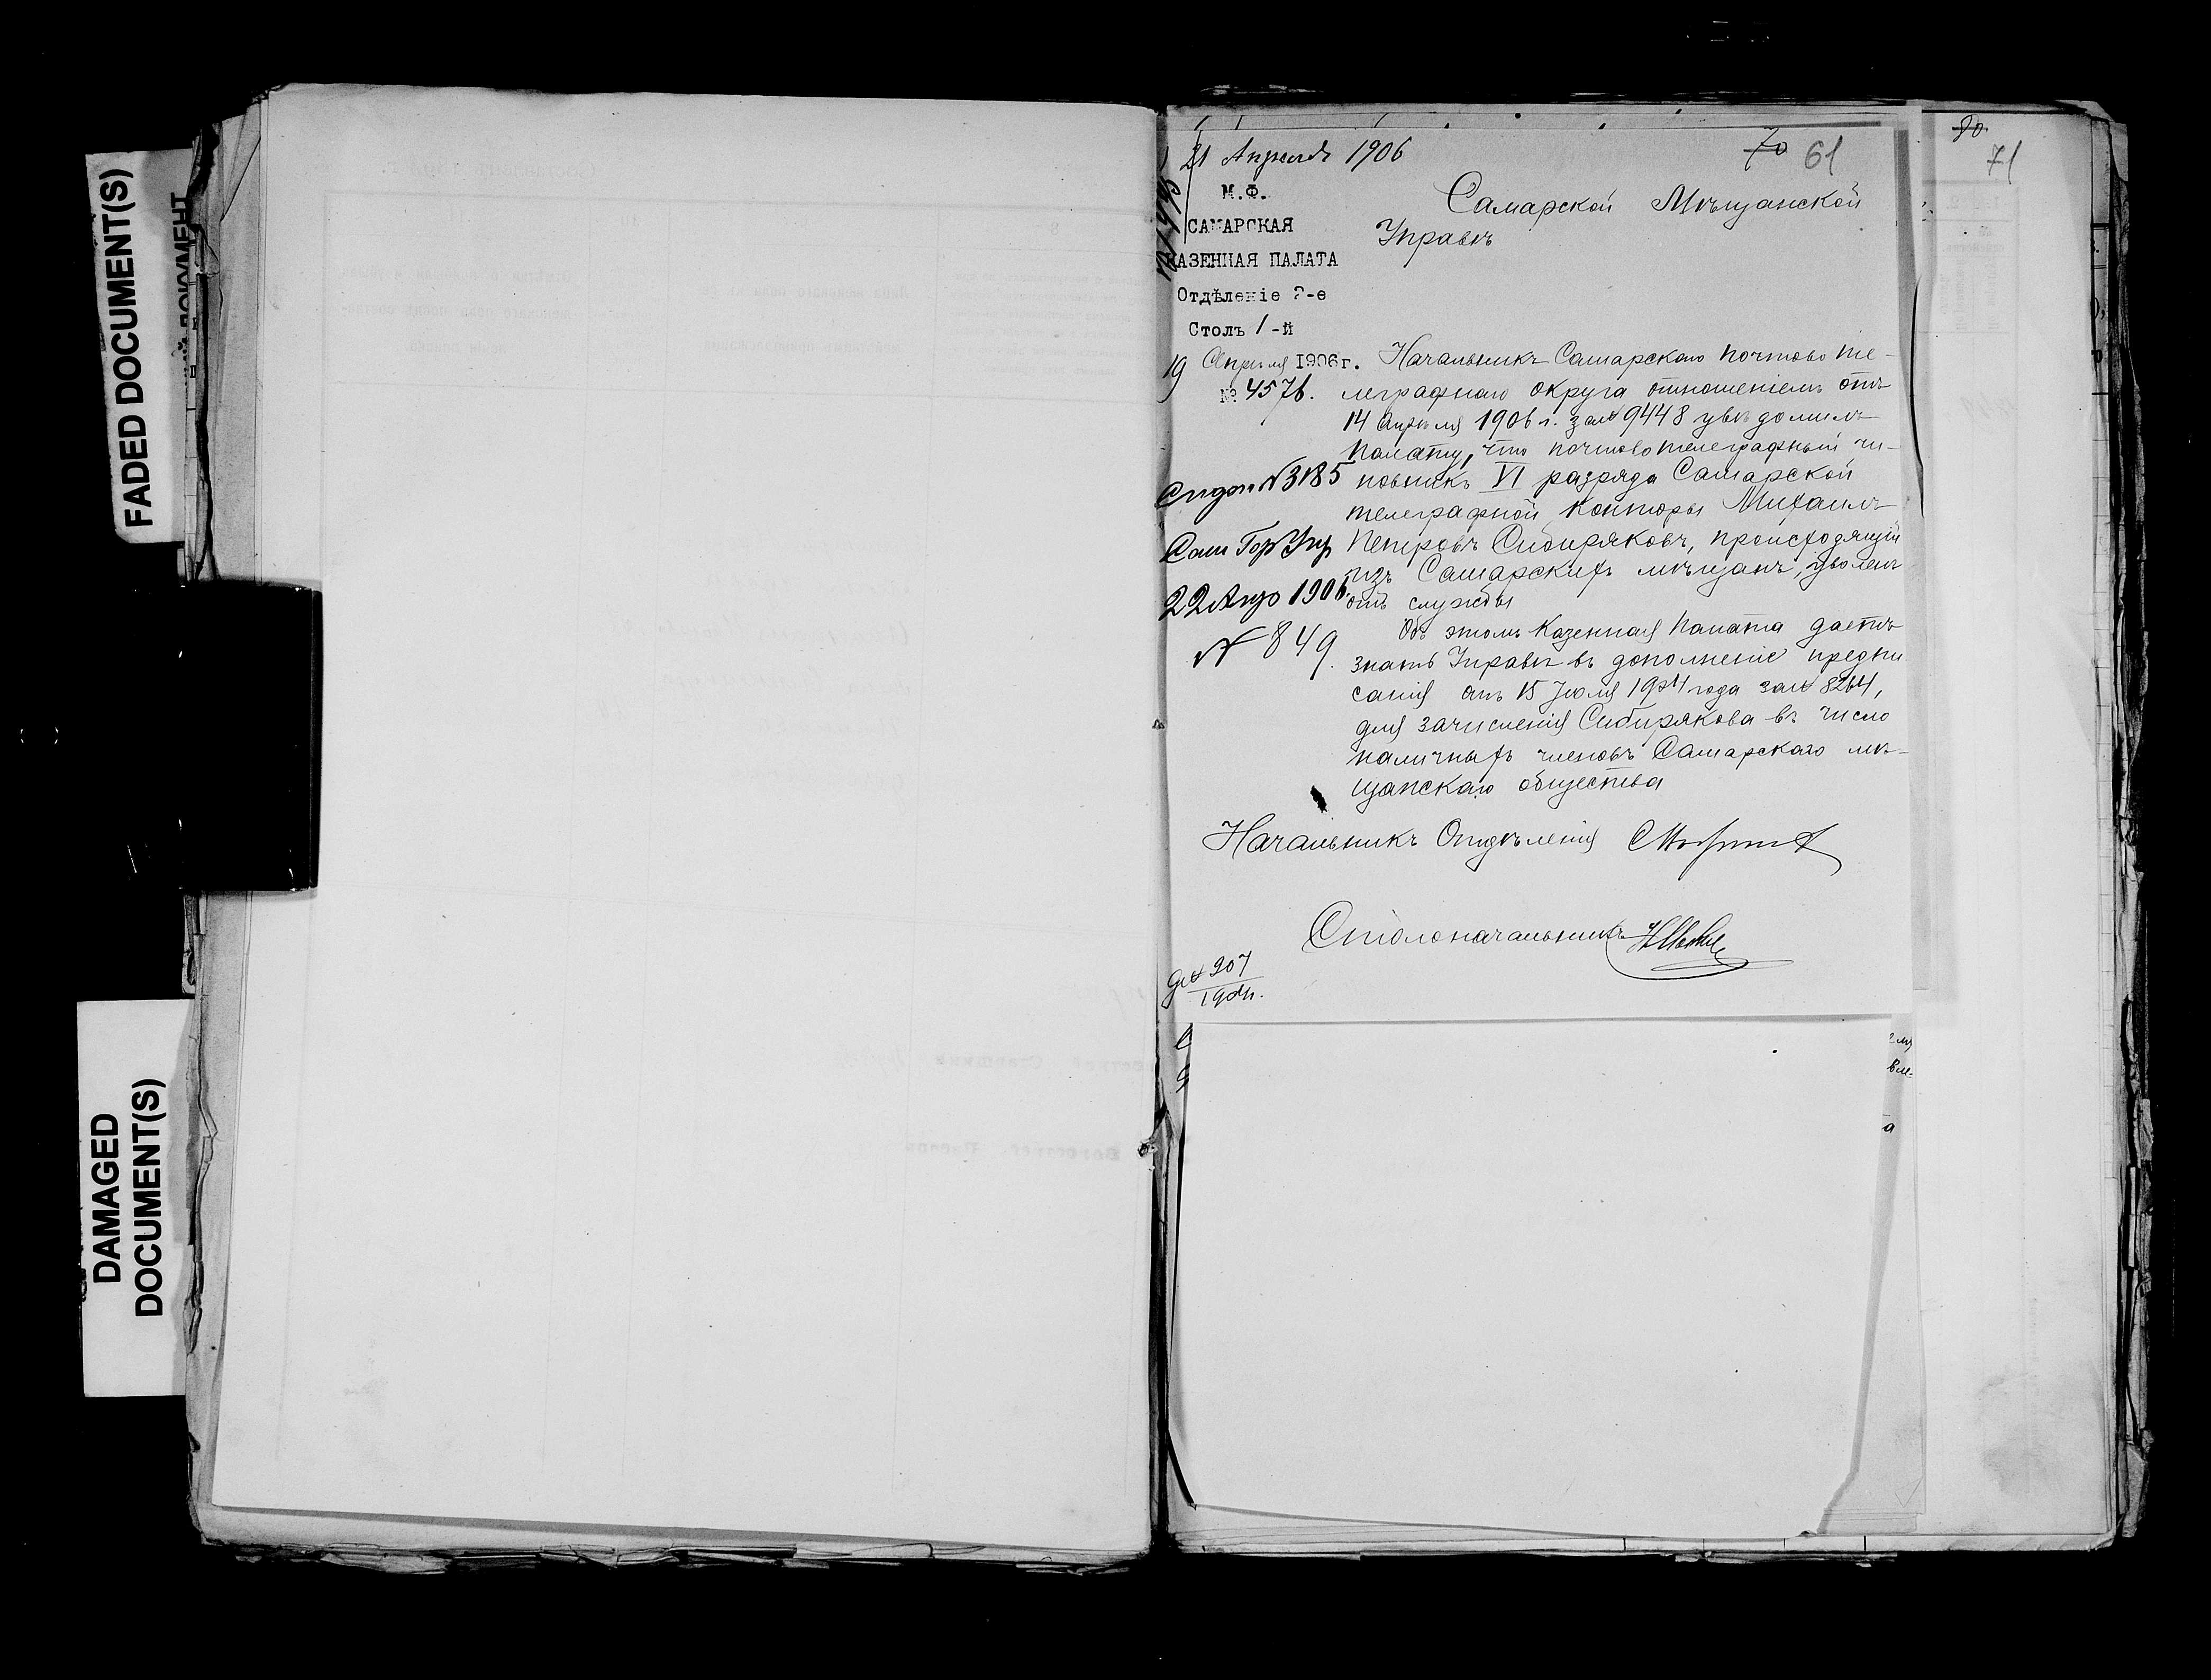 FADED DOCUMENT(S)
DAMAGED
DOCUMENT(S)
21 Апрѣля 1906
70 61
80.
71
М.Ф.
САМАРСКАЯ
КАЗЕННАЯ ПАЛАТА
Отдѣленіе 2-е
Столъ 1-й
19 Апрѣля 1906г.
№ 4576.
Самарской Мѣщанской
Управѣ
Начальникъ Самарскаго почтово те-
леграфнаго округа отношеніемъ отъ
14 Апрѣля 1906 г. за № 9448 увѣдомилъ
палату, что почтово телеграфный чи-
новникъ VI разряда Самарской
телеграфной конторы Михаилъ
Петровъ Сибиряковъ, происходящій
изъ Самарскихъ мѣщанъ, уволенъ
отъ службы
Объ этомъ Казенная Палата даетъ
знать Управѣ въ дополненіе предпи
санія отъ 15 Іюля 1904 года за № 8264,
для зачисленія Сибирякова въ число
наличныхъ членовъ Самарскаго мѣ-
щанскаго общества
№ 3185
Сам Гор Упр
22 Апр 1906.
№ 849.
Начальникъ Отдѣленія
Столоначальникъ
д № 207
1904г.